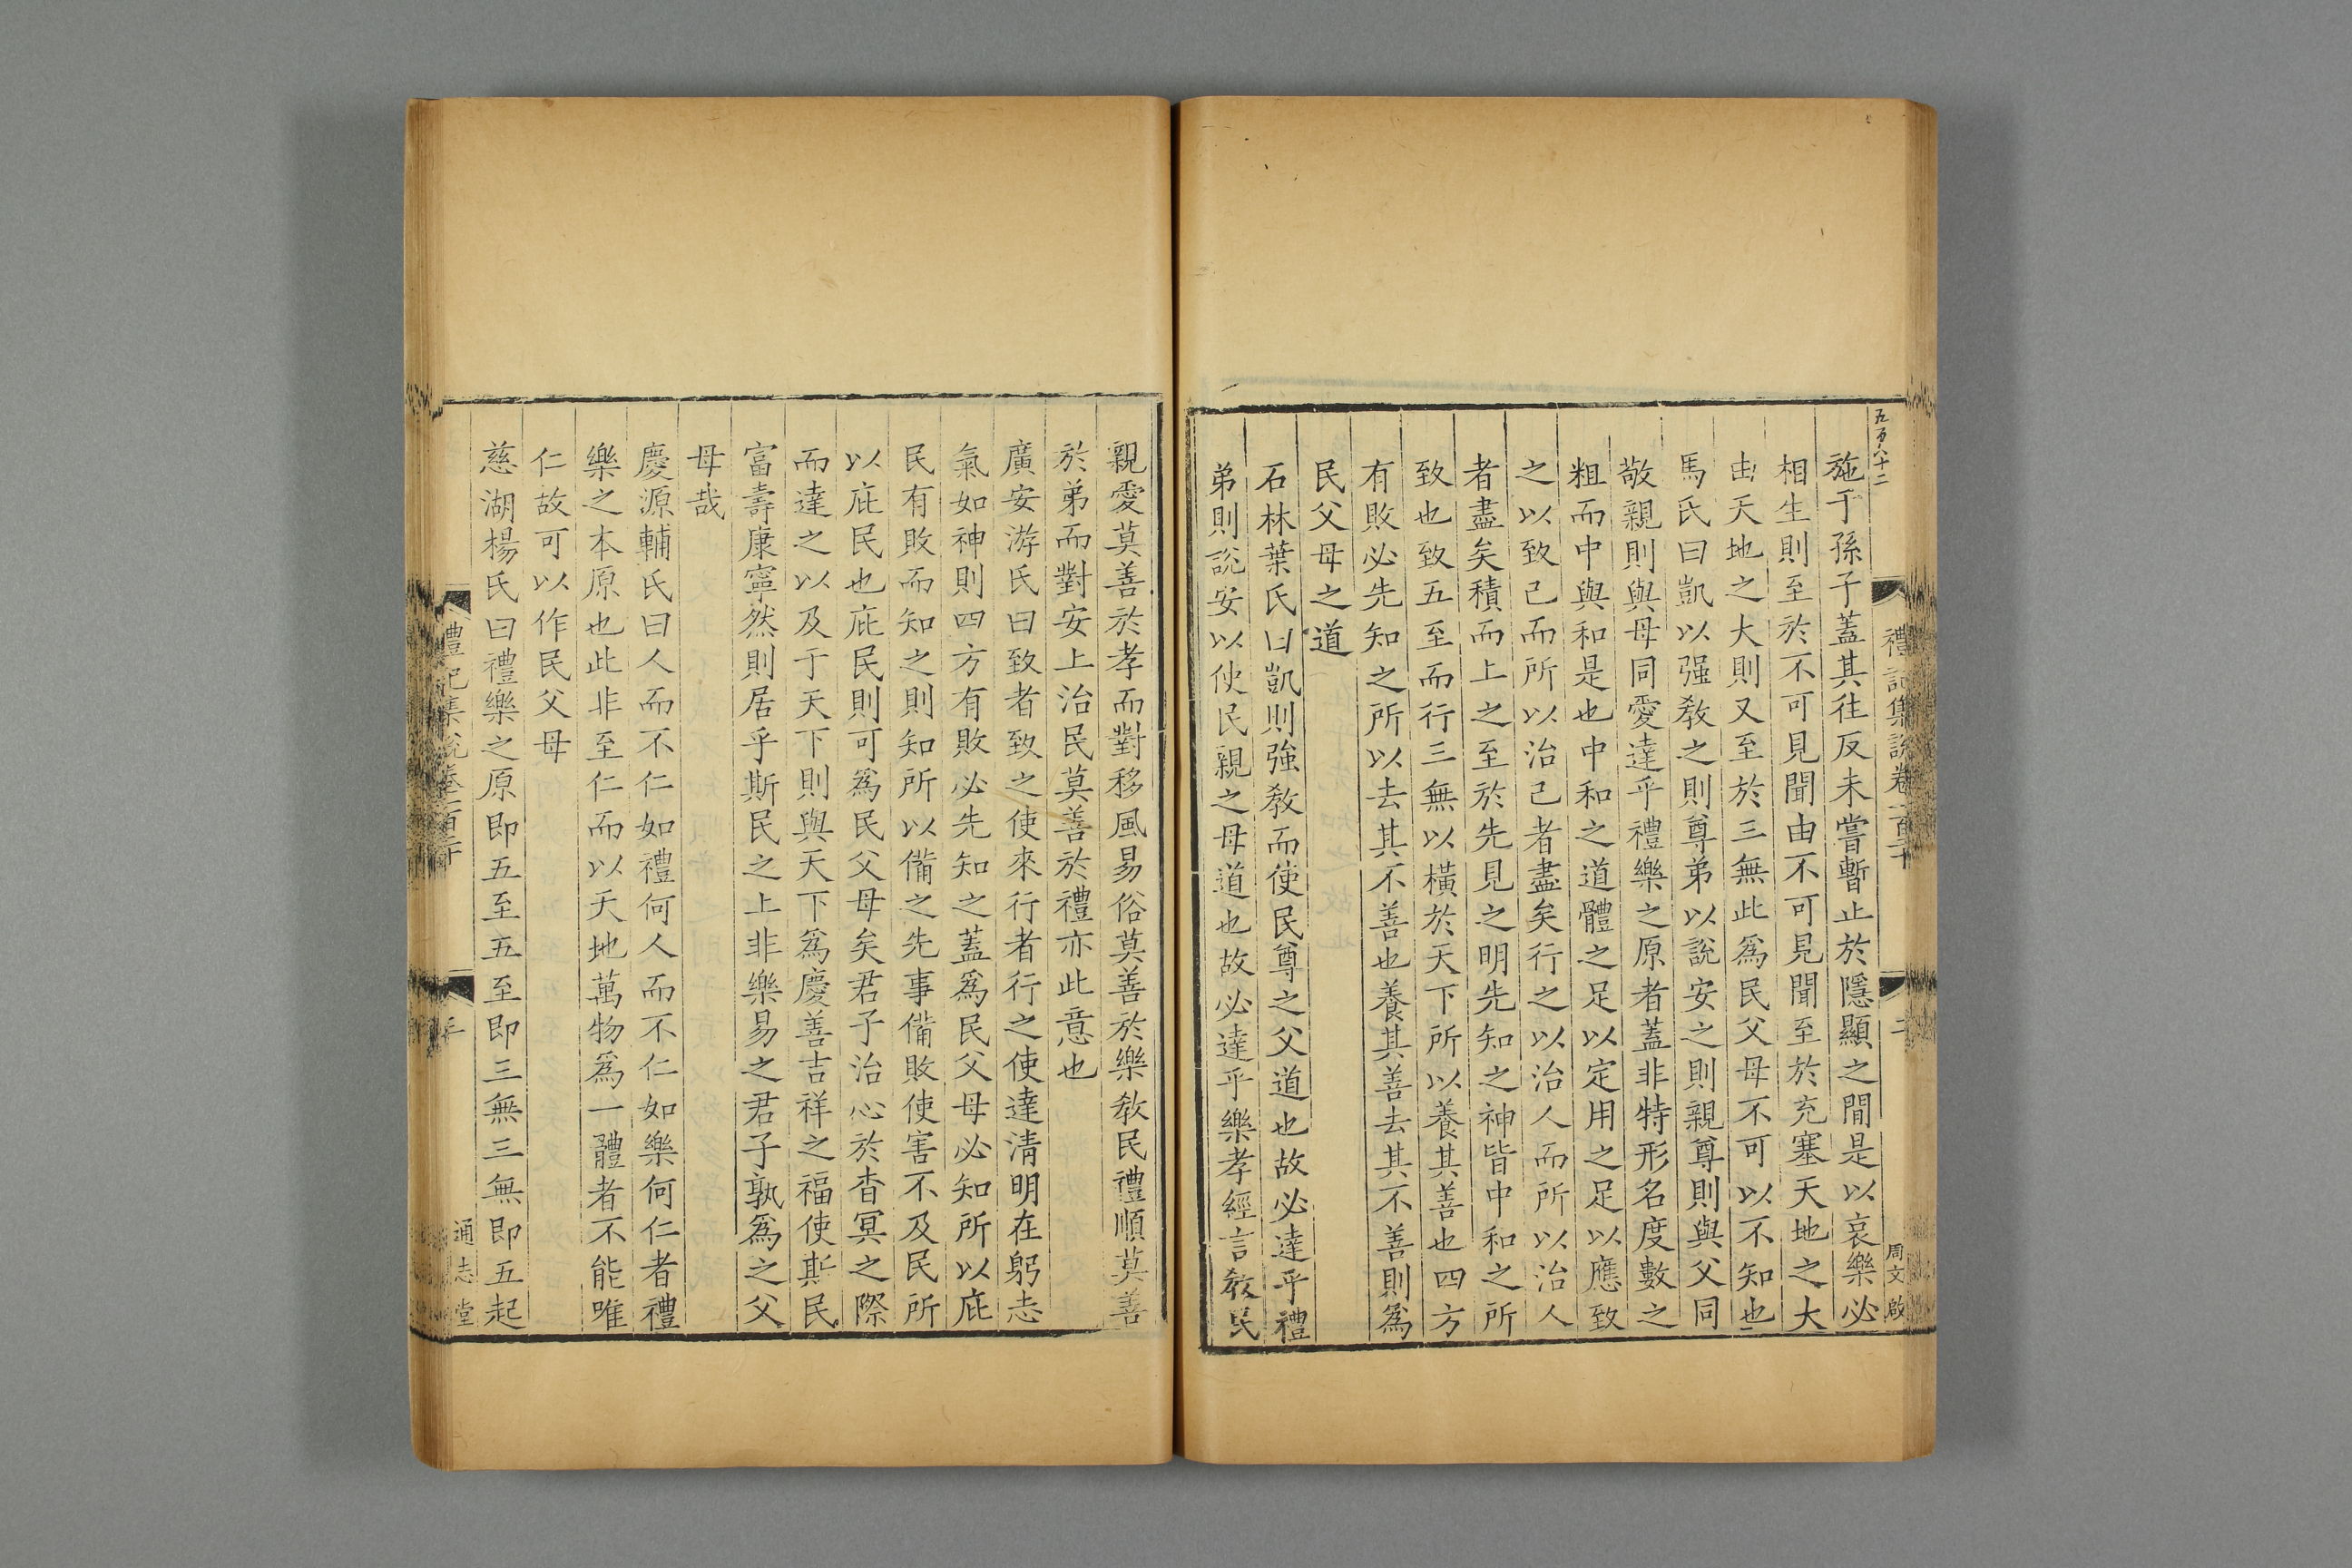 五百八十二
禮記集說卷一百二十
二
周文啟
施于孫子蓋其往反未嘗暫止於隱顯之間是以哀樂必
相生則至於不可見聞由不可見聞至於充塞天地之大
由天地之大則又至於三無此為民父母不可以不知也
馬氏曰凱以强敎之則尊弟以說安之則親尊則與父同
敬親則與母同愛達乎禮樂之原者蓋非特形名度數之
粗而中與和是也中和之道體之足以定用之足以應致
之以致己而所以治己者盡矣行之以治人而所以治人
者盡矣積而上之至於先見之明先知之神皆中和之所
致也致五至而行三無以橫於天下所以養其善也四方
有敗必先知之所以去其不善也養其善去其不善則爲
民父母之道
石林葉氏曰凱則強敎而使民尊之父道也故必達乎禮
弟則說安以使民親之母道也故必達乎樂孝經言敎民
親愛莫善於孝而對移風易俗莫善於樂敎民禮順莫善
於弟而對安上治民莫善於禮亦此意也
廣安游氏曰致者致之使來行者行之使達淸明在躬志
氣如神則四方有敗必先知之蓋爲民父母必知所以庇
民有敗而知之則知所以備之先事備敗使害不及民所
以庇民也庇民則可爲民父母矣君子治心於杳冥之際
而達之以及于天下則與天下爲慶善吉祥之福使斯民
富壽康寧然則居乎斯民之上非樂易之君子孰爲之父
母哉
慶源輔氏曰人而不仁如禮何人而不仁如樂何仁者禮
樂之本原也此非至仁而以天地萬物爲一體者不能唯
仁故可以作民父母
慈湖楊氏曰禮樂之原即五至五至即三無三無即五起
禮記集說卷一百二十
通志堂